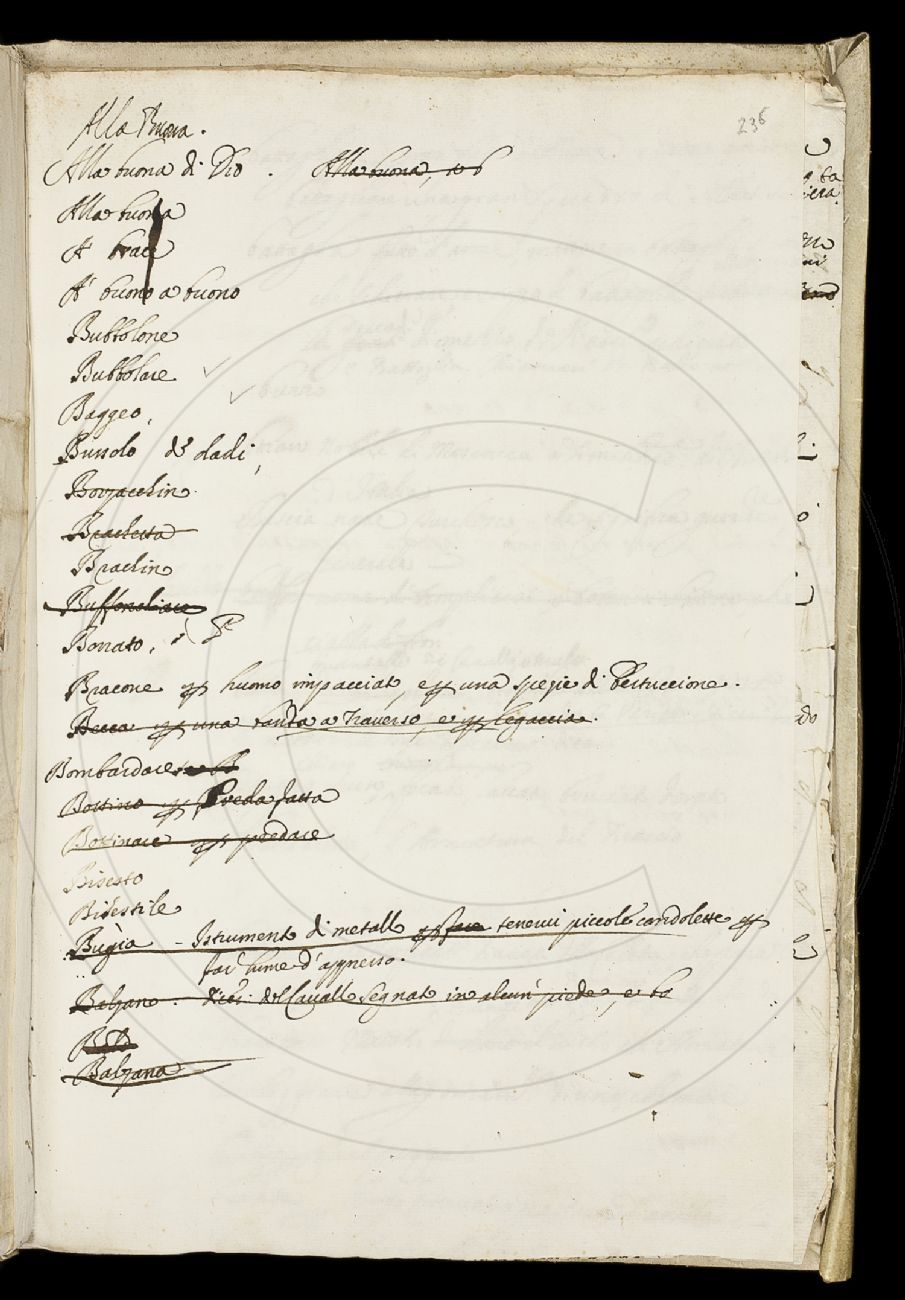 Alla Buona.
236
Alla buona di Dio. Alla buona, e b
Alla buona
A brace
A buono a buono
Bubbolone
Bubbolare
Baggeo,
Bussolo de dadi,
Borzacchino
Brachetta
Brachino
Buffonchiare
Bonato,
Bracone huomo impacciato, e una spezie di Bertuccione.
Becca una banda a traverso, e legaccia.
Bombardare
Bottino Preda fatta
Bottinare predare
Bisesto
Bisestile
Bugia - Istrumento di metallo fare tenervi piccole candolette
far lume d'appresso.
Balzano. Dicesi del Cavallo segnato in alcun piede, e ba
Balzana